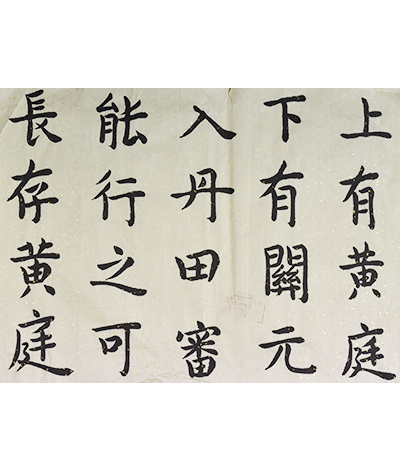 上有黄庭
下有關元
入丹田審
能行之可
長存黄庭